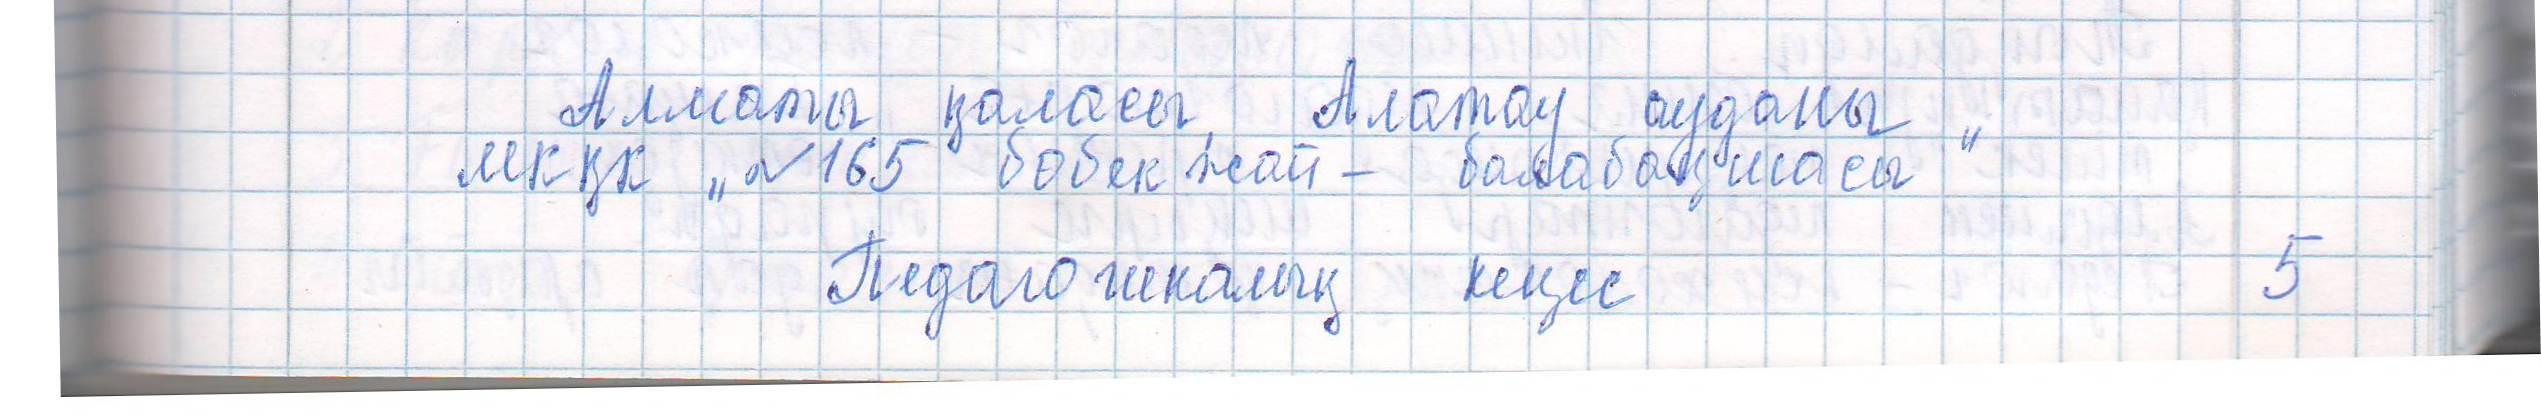 Алматы қаласы, Алатау ауданы
МКҚК „№165 бөбекжай – балабақшасы"
Педагогикалық кеңес 5